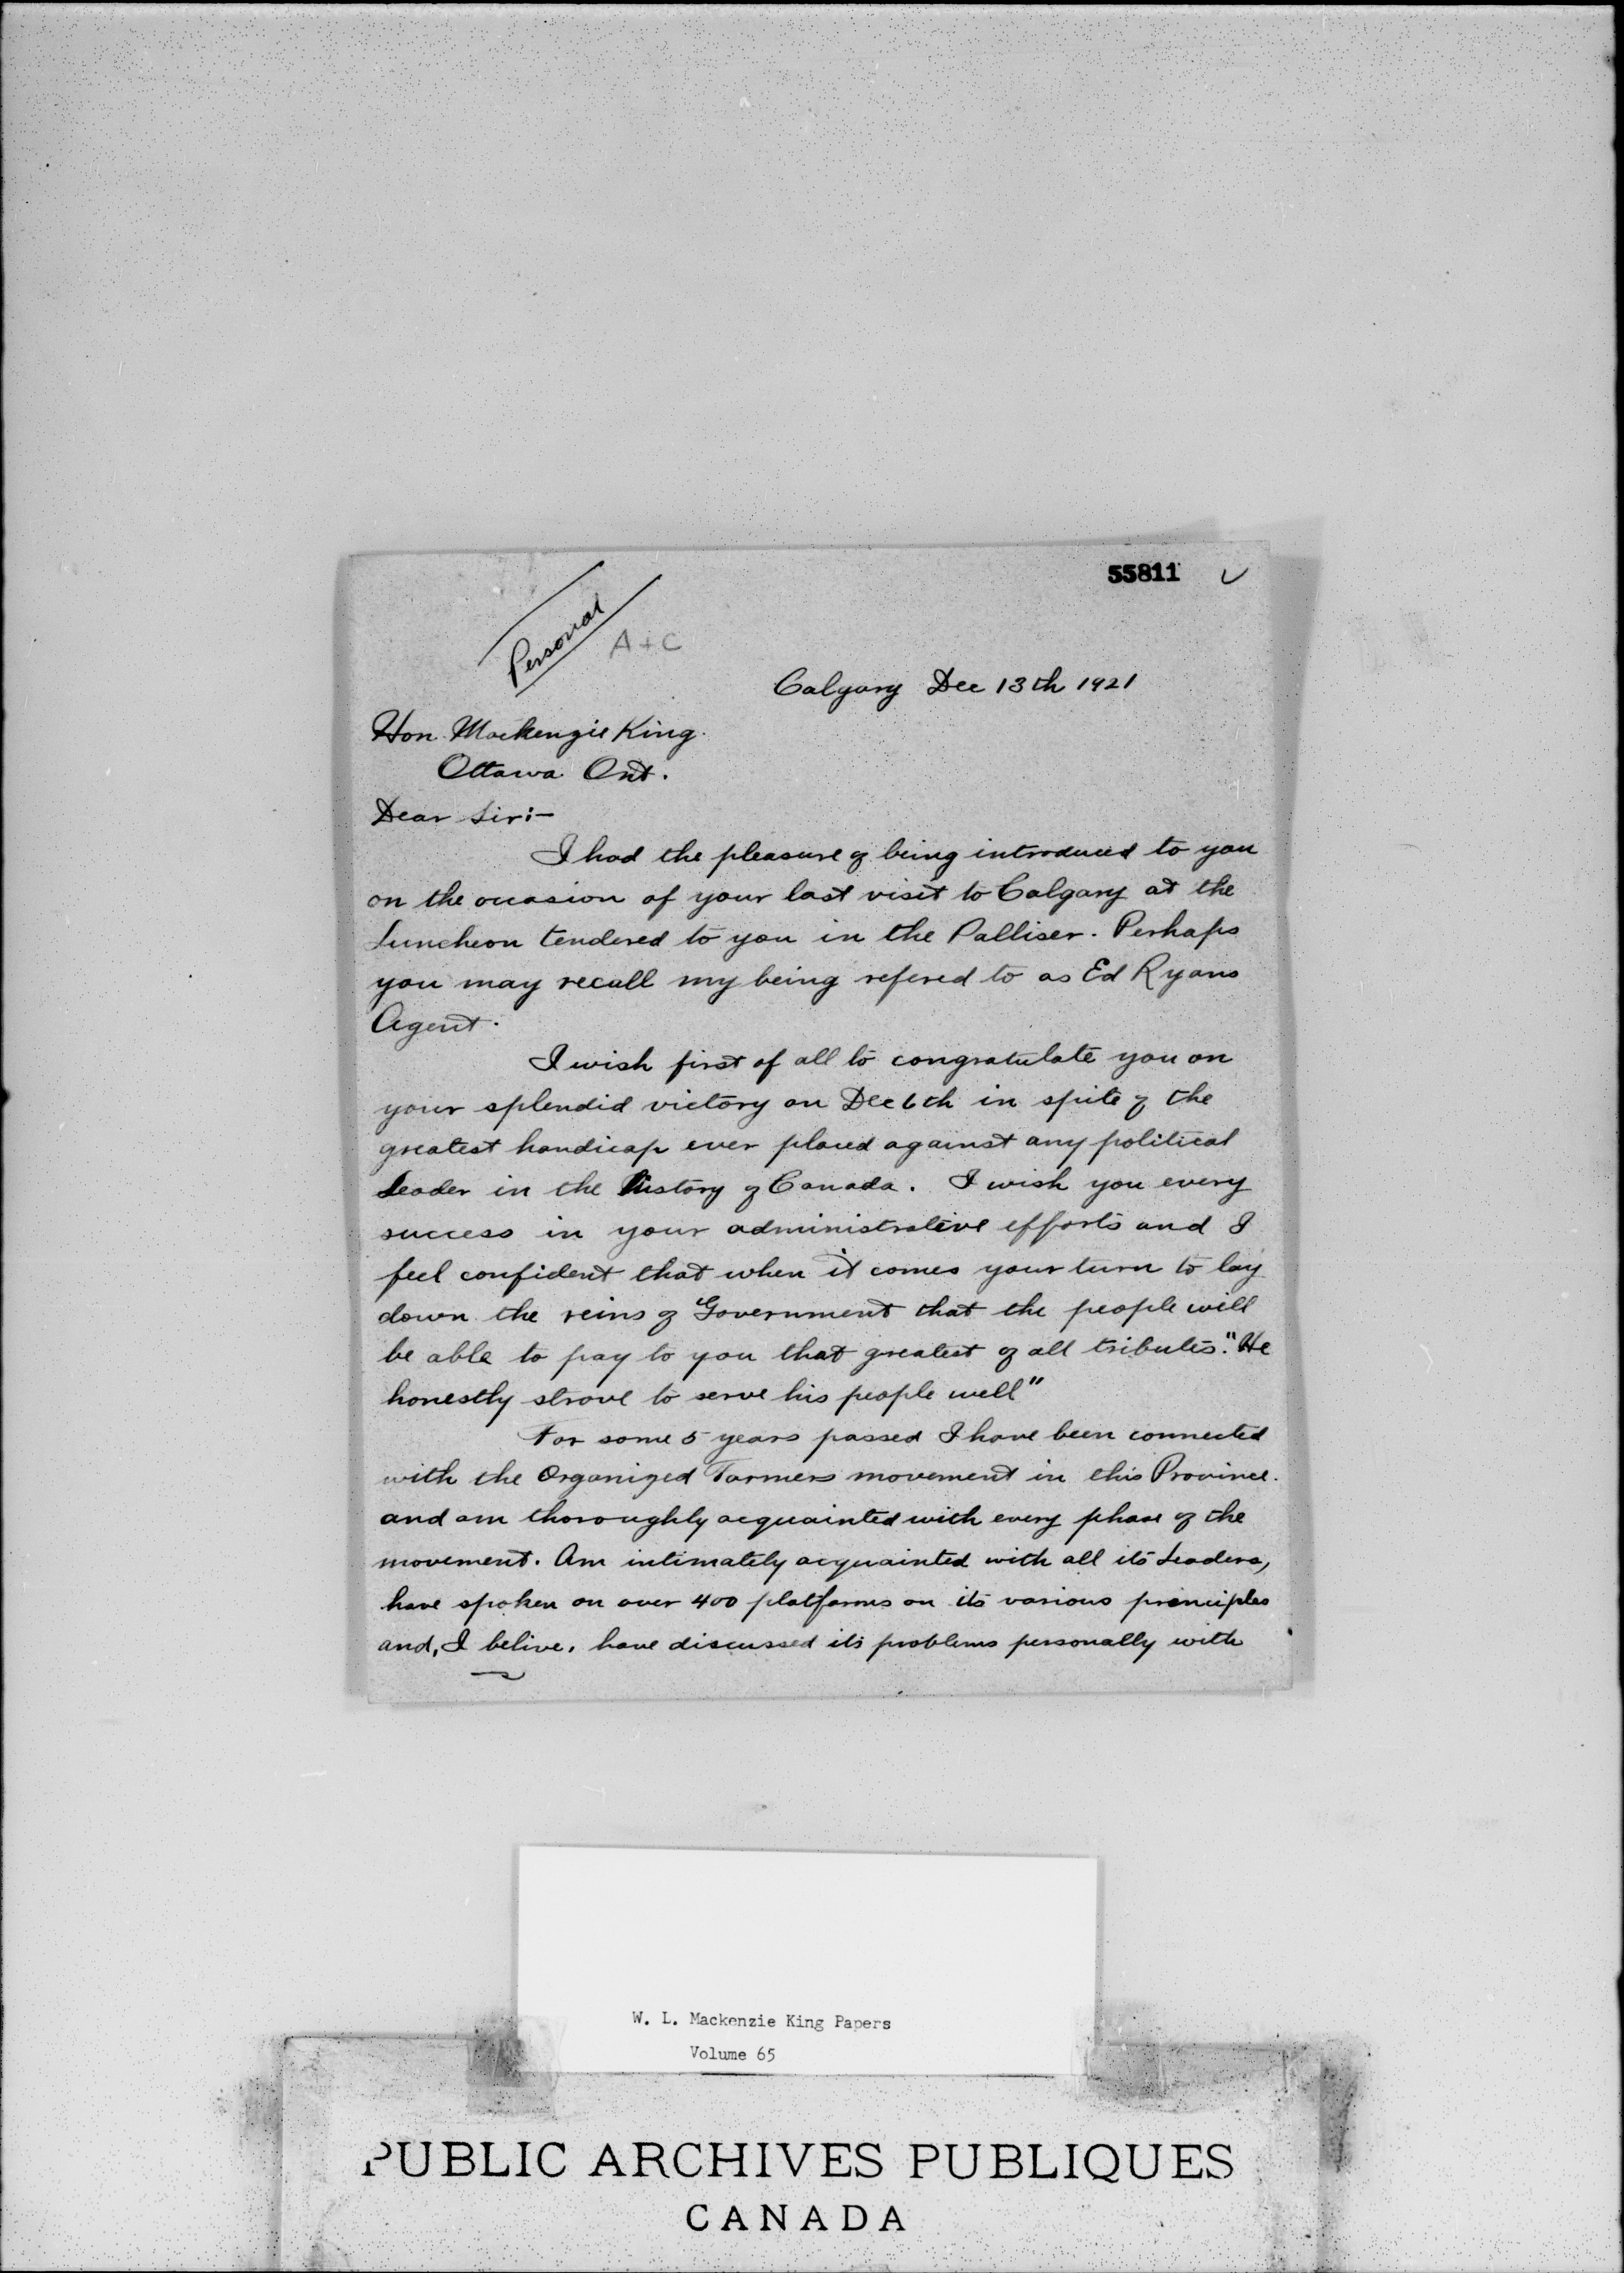 55811
Personal
A+C
Calgary Dec 13th 1921
Hon Mackenzie King.
Ottawa Ont.
Dear Sir:-
I had the pleasure of being introduced to you
on the occasion of your last visit to Calgary at the
Luncheon tendered to you in the Palliser. Perhaps
you may recall my being refered to as Ed Ryans
Agent.
I wish first of all to congratulate you on
your splendid victory on Dec 6th in spite of the
greatest handicap ever placed against any political
Leader in the history of Canada. I wish you every
success in your administrative efforts and I
feel confident that when it comes your turn to lay
down the reins of Government that the people will
be able to pay to you that greatest of all tributes. "He
honestly strove to serve his people well"
For some 5 years passed I have been connected
with the Organized Farmers movement in this Province.
and am thoroughly acquainted with every phase of the
movement. Am intimately acquainted with all its Leaders,
have spoken on over 400 platforms on its various principles
and, I belive, have discussed its problems personally with
W. L. Mackenzie King Papers
Volume 65
PUBLIC ARCHIVES PUBLIQUES
CANADA